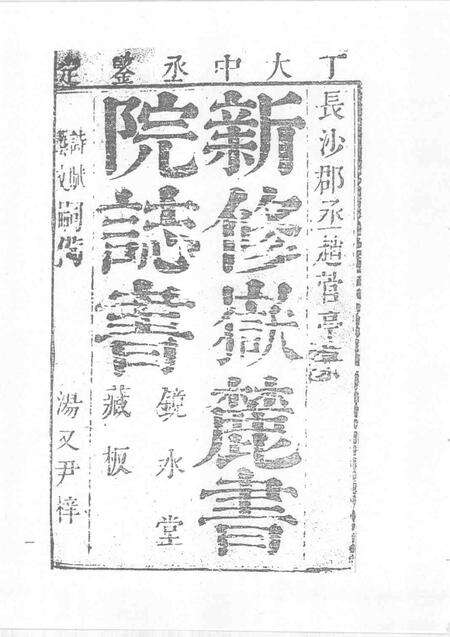 丁大中丞鑒定
長沙郡丞趙亭
新修嶽麓書
院誌書
鏡水堂
藏板
詩賦
文嗣
湯又尹梓